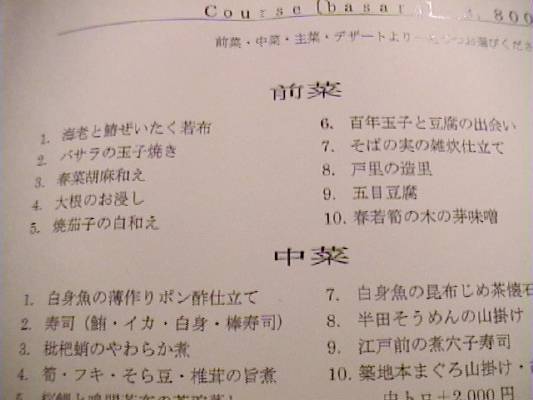 Course (basara) 4, 800
前菜・中菜・主菜・デザートより一品づつお選びくださ
前菜
1. 海老と鰆ぜいたく若布
2. バサラの玉子焼き
3. 春菜胡麻和え
4. 大根のお浸し
5. 焼茄子の白和え
6. 百年玉子と豆腐の出会い
7. そばの実の雑炊仕立て
8. 戸里の造里
9. 五目豆腐
10. 春若筍の木の芽味噌
中菜
1. 白身魚の薄作りポン酢仕立て
2. 寿司（鮪・イカ・白身・棒寿司）
3. 枇杷蛸のやわらか煮
4. 筍・フキ・そら豆・椎茸の旨煮
5. 桜鯛と鳴門若布の茶碗蒸し
7. 白身魚の昆布じめ茶懐石
8. 半田そうめんの山掛け
9. 江戸前の煮穴子寿司
10. 築地本まぐろ山掛け・
中トロ＋2,000円